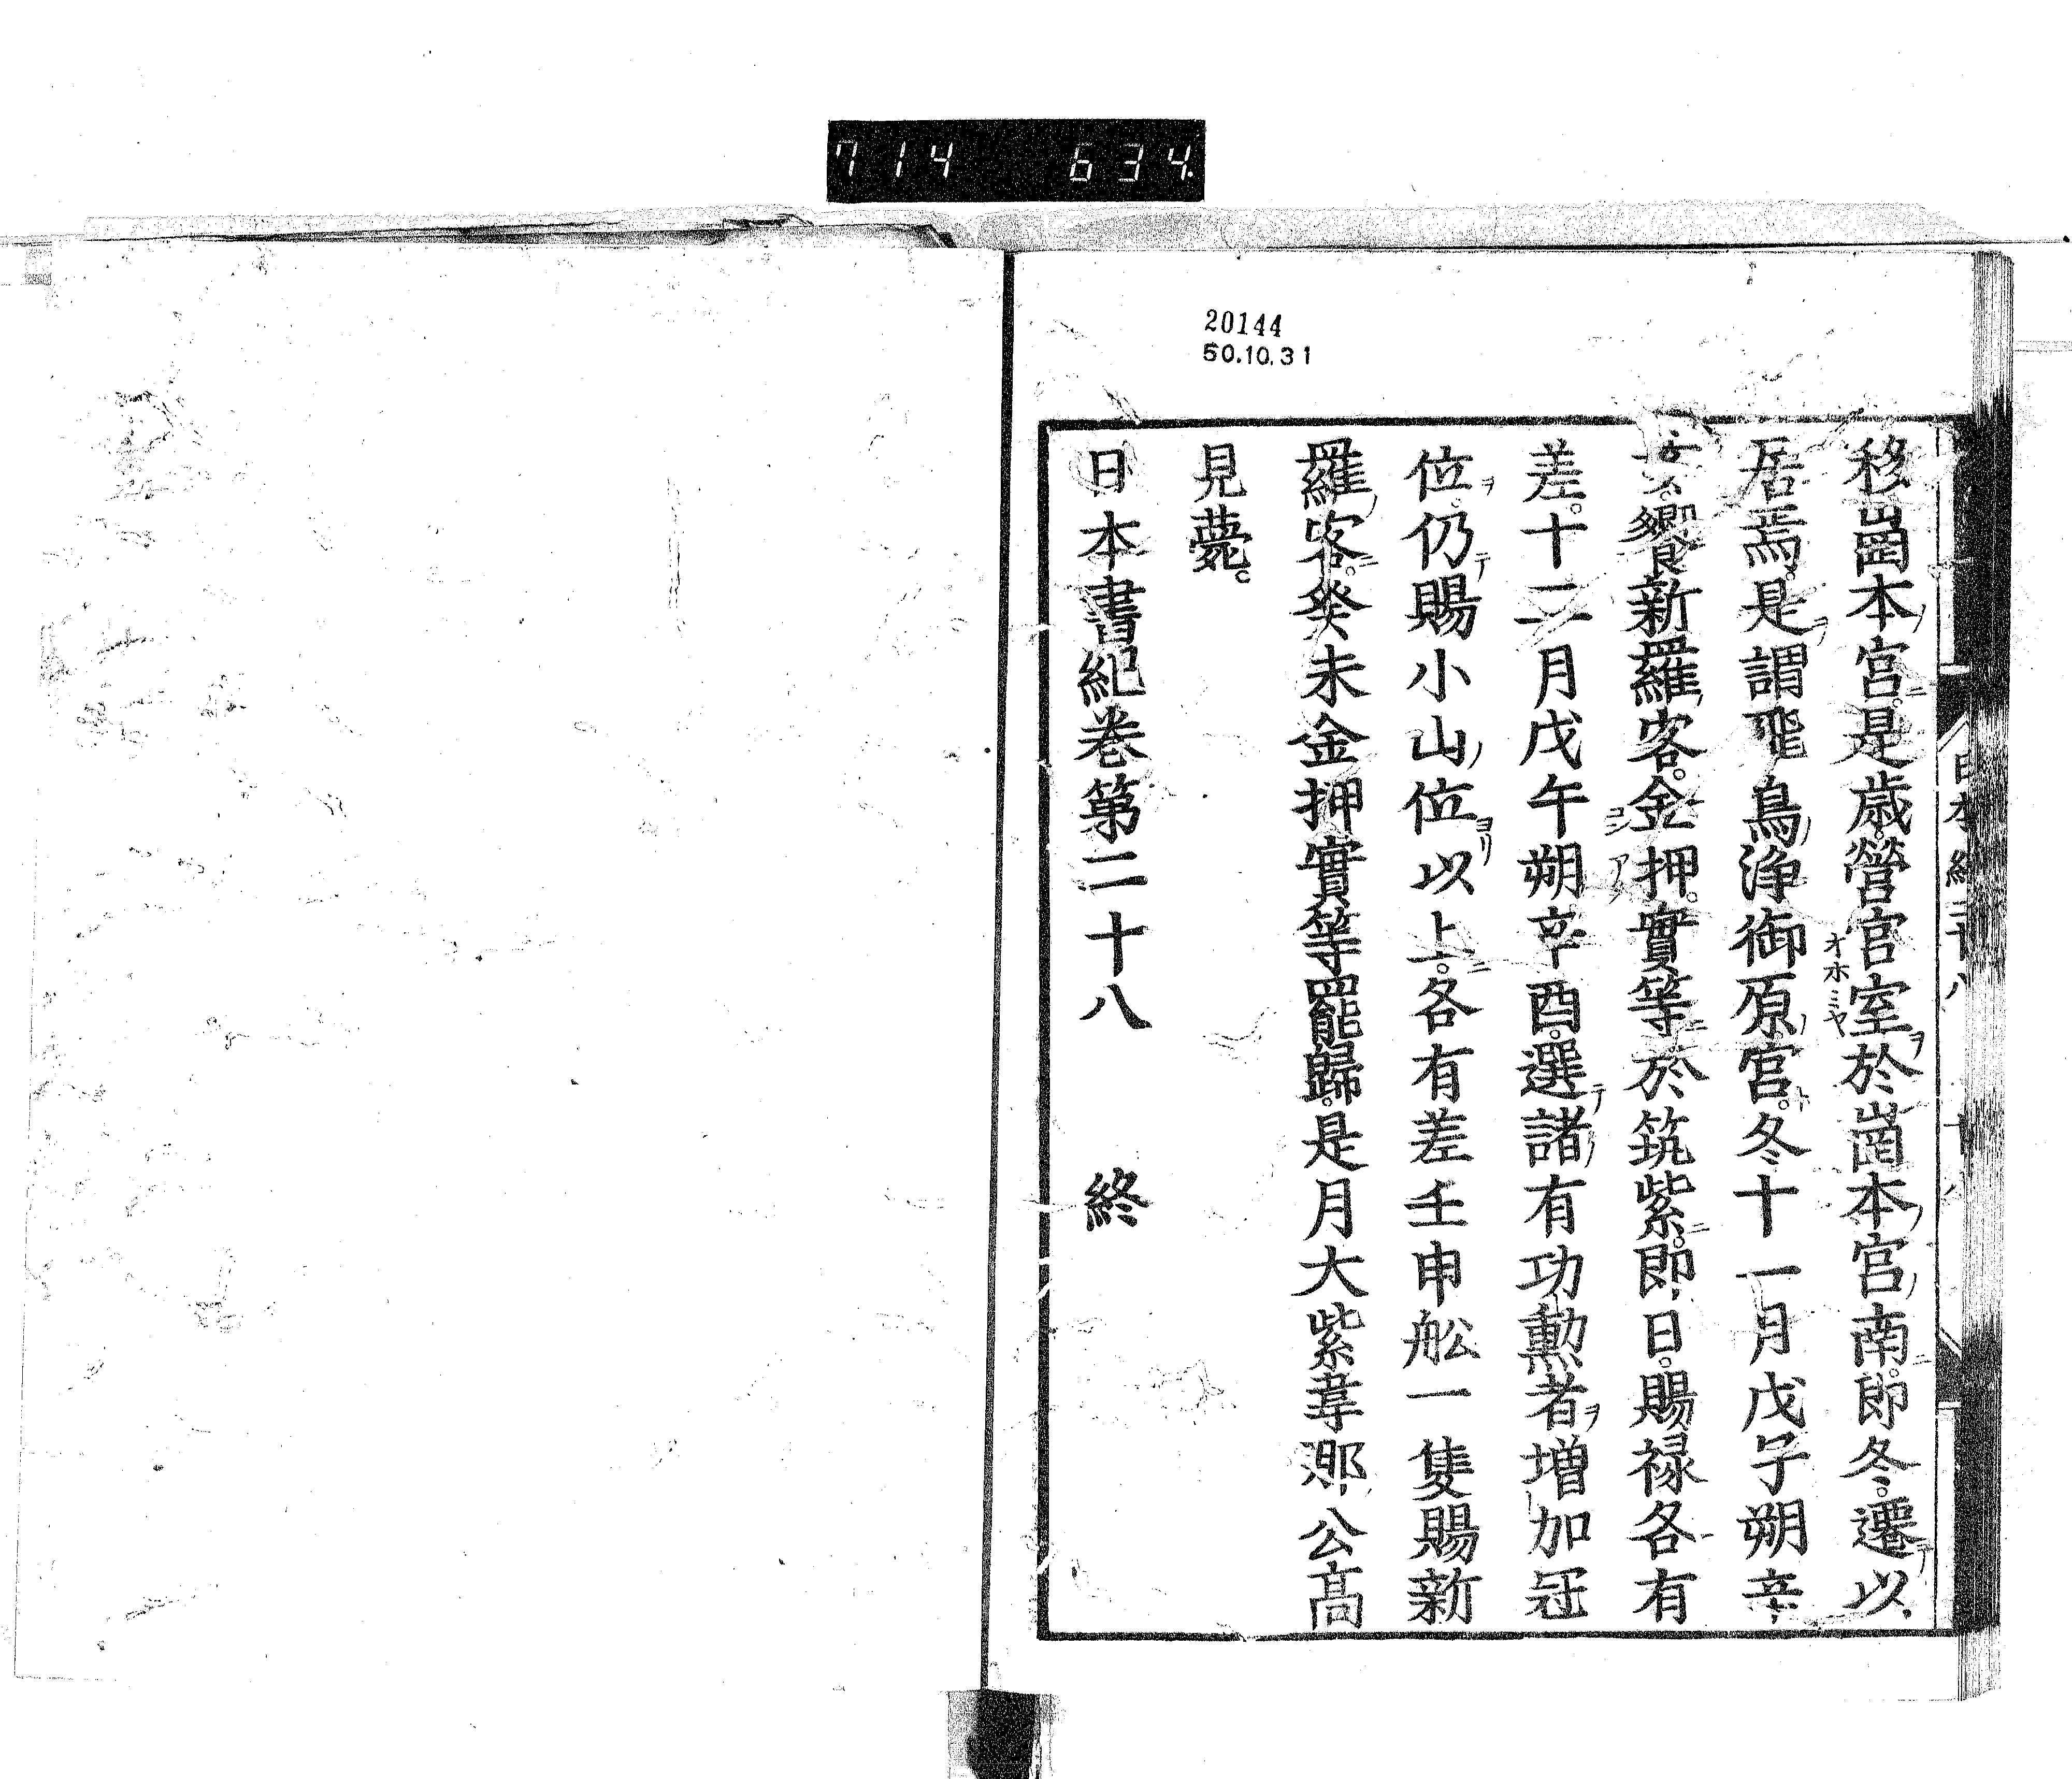 714 634.
20144
50.10.31
移崗本宮。是歳。營宮室於崗本宮南。即冬。遷以
居焉。是謂飛鳥浄御原宮。冬十一月戊子朔辛
饗新羅客。金押。實等於筑紫。即日。賜禄各有
差。十二月戊午朔辛酉。選諸有功勲者増加冠
位。仍賜小山位以上。各有差壬申舩一隻賜新
羅客。癸未金押實等罷歸。是月大紫韋那公高
見薨。
日本書紀巻第二十八 終